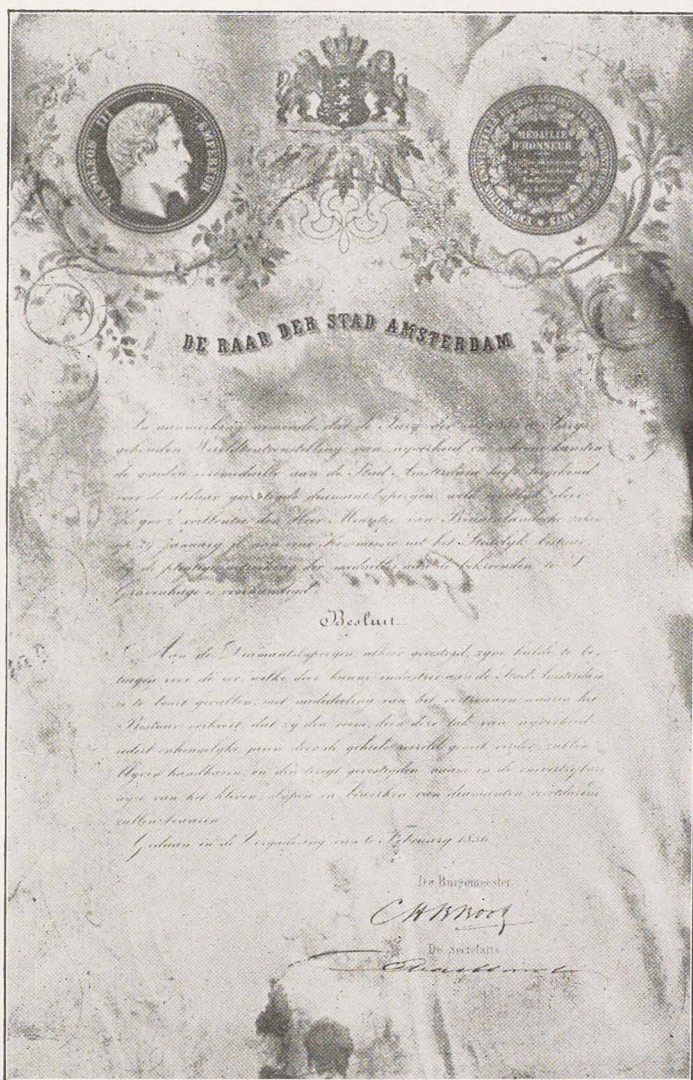 NAPOLEON III EMPEREUR
MÉDAILLE
D'HONNEUR
DE RAAD DER STAD AMSTERDAM
In aanmerking nemende, dat de Jury der in 1855 te Parys
gehouden Wereldtentoonstelling van nyverheid en schoone kunsten
de gouden eeremedaille aan de Stad Amsterdam heeft toegekend
voor de aldaar gevestigde diamantslyperyen, welk eerblyk door
Zyne Excellentie den Heer Minister van Binnenlandsche zaken
op 29 January aan eene Kommissie uit het Stedelyk bestuur
by de plegtige uitreiking der medailles aan de bekroonden te S
Gravenhage is overhandigd
Besluit
Aan de Diamantslyperyen alhier gevestigd, zyne hulde te be,
tuigen voor de eer, welke door hunne industrie aan de Stad Amsterdam
is te beurt gevallen, met mededeeling van het vertrouwen waarin het
Bestuur verkeert, dat zy den roem, dien deze tak van nyverheid
sedert onheugelyke jaren door de geheele wereld geniet verder zullen
blyven handhaven, en den teregt gevestigden naam in de
wyze van het kloven, slypen en bewerken van diamanten
zullen bewaren
Gedaan in de Vergadering van 6 February 1856
De Burgemeester
De Secretaris